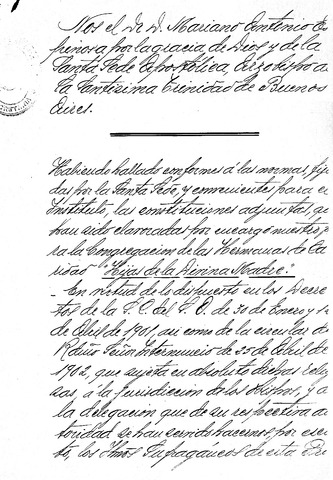 Nos el Dr. D. Mariano Antonio Es
pinosa por la gracia de Dios y de la
Santa Sede Apostólica, Arzobispo de
la Santísima Trinidad de Buenos
Aires.
Habiendo hallado conformes á las normas, fija
das por la Santa Sede, y convenientes para el
Instituto, las constituciones adjuntas, que
han sido elaboradas por encargo nuestro, pa
ra la Congregacion de las Hermanas de Ca
ridad "Hijas de la Divina Madre".
- En virtud de lo dispuesto en los Decre
tos de la S. C. del S. O. de 30 de Enero y
de Abril de 1901, así como de la circular del
Rdmo Señor Internuncio de 25 de Abril de
1902, que sujeta en absoluto dichas religio
sas, á la jurisdiccion de los Obispos, y a
la delegacion que de su respectiva au
toridad se han servido hacernos, por escri
to, los Ilmos Sufragáneos de esta Pro